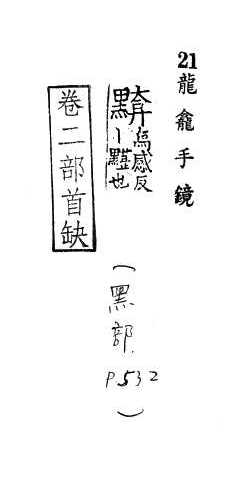 21龍龕手鏡
烏感反
丨也
卷二部首缺
(黑部 P532)